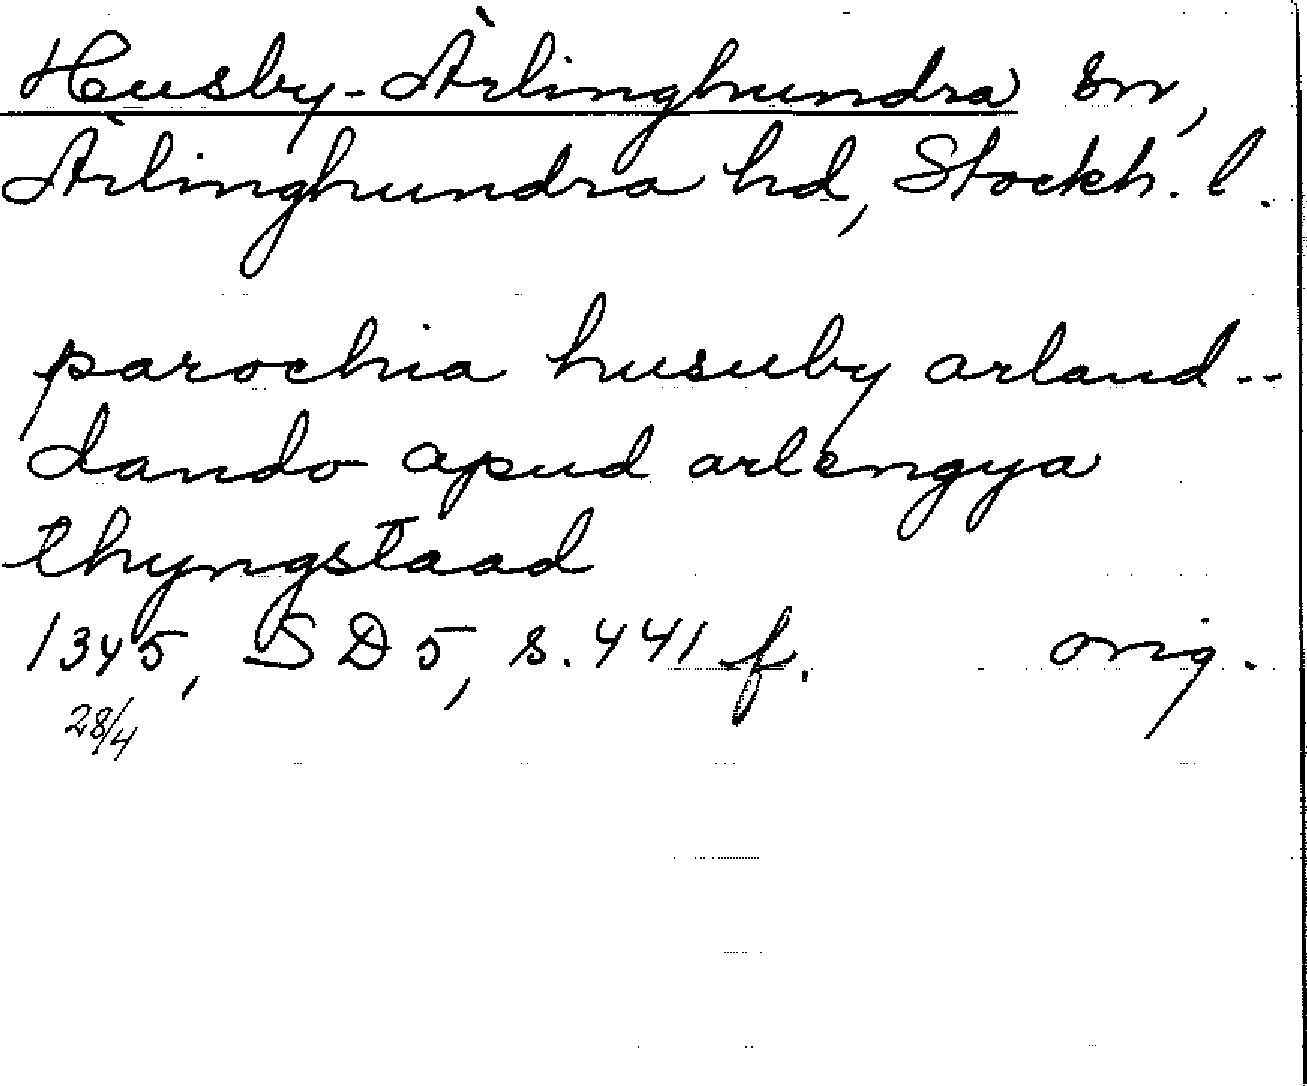 Husby-Ärlinghundra sn,
Ärlinghundra hd, Stockh. l.
parochia husuby arland--
dando apud arlengya
thyngstaad
1345, SD 5, s. 441 f. orig.
28/4